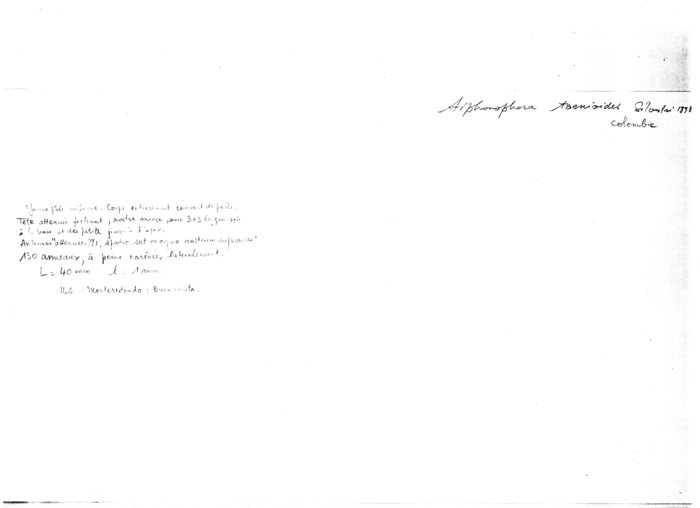 Siphonophora taenioides Silvestri 1898
Colombie
Jaune pâle uniforme. Corps entièrement couvert de poils.
Tête atténuée, rostre mince, avec 3+3
à la base et des petits jusqu'à l'apex.
Antennes "atténuées (?), spatio sat magno rostrum superantes"
130 anneaux, à peine carénés latéralement.
L = 40 mm l = 1 mm
Hab : Monteredondo : Buenavista.